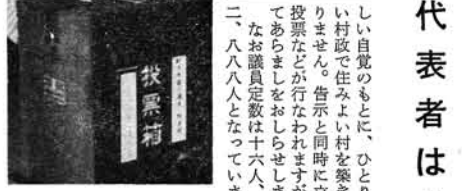 代表者は
しい自覚のもとに、ひとり
い村政で住みよい村を築き
りません。告示と同時に立
投票などが行なわれますが
てあらましをおしらせしま
なお議員定数は十六人、
二、八八八人となっていま
投票箱